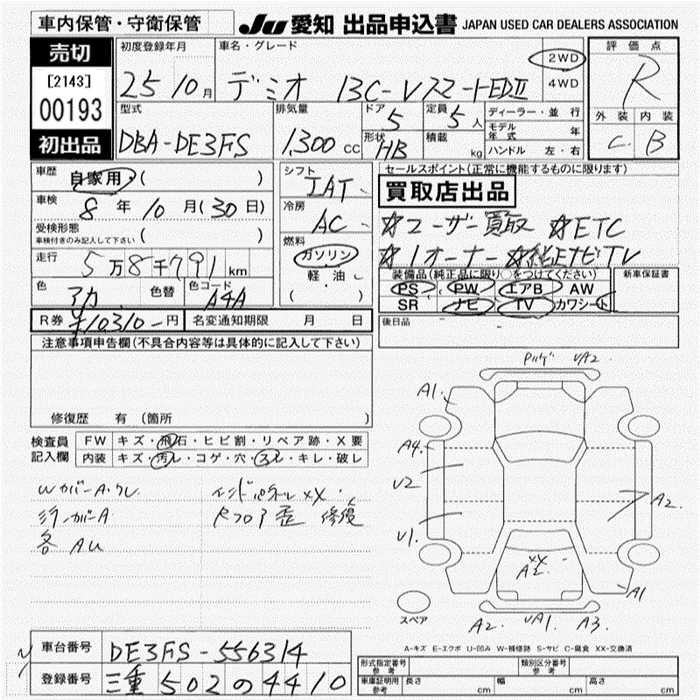 車内保管・守衛保管
JU 愛知 出品申込書 JAPAN USED CAR DEALERS ASSOCIATION
売切
[2143]
00193
初出品
初度登録年月
25 10月
車名・グレード
デミオ 13C-Vスマートed II
2WD
4WD
評価点
R
外装 内装
C B
型式
DBA-DE3FS
排気量
1,300 cc
ドア
5
形状
HB
定員
5人
積載
kg
ディーラー・並行
モデル年式 年
ハンドル 左・右
車歴
自家用 ( )
車検
8年 10月(30日)
受検形態
車検付きのみ記入して下さい ( )
走行
5万8千791 km
色
アカ
色替
色コード
A4A
R券 ¥10310-円
名変通知期限 月 日
シフト
IAT
冷房
AC
燃料
ガソリン
軽油
( )
セールスポイント(正常に機能するものに限ります)
買取店出品
☆ユーザー買取 ☆ETC
☆1オーナー ☆純正ナビTV
装備品(純正品に限り○をつけてください)
PS PW エアB AW
SR ナビ TV カワシート
新車保証書
後日品
注意事項申告欄(不具合内容等は具体的に記入して下さい)
修復歴 有 (箇所 )
検査員記入欄
FW キズ・飛石・ヒビ割・リペア跡・X要
内装 キズ・汚レ・コゲ・穴・スレ・キレ・破レ
WカバーA・クレ
ミラーカバーA
各 AU
インドパネルXX・
Rフロア歪 修復
VA2
A1
A4
U2
U1
A2
XX
A2
A1
A2
UA1
A3
スペア
A-キズ E-エクボ U-凹み W-補修跡 S-サビ C-腐食 XX-交換済
車台番号 DE3FS-556314
登録番号 三重 502 の 4410
形式指定番号 参考
類別区分番号 参考
車庫証明用 参考 長さ cm 幅 cm 高さ cm